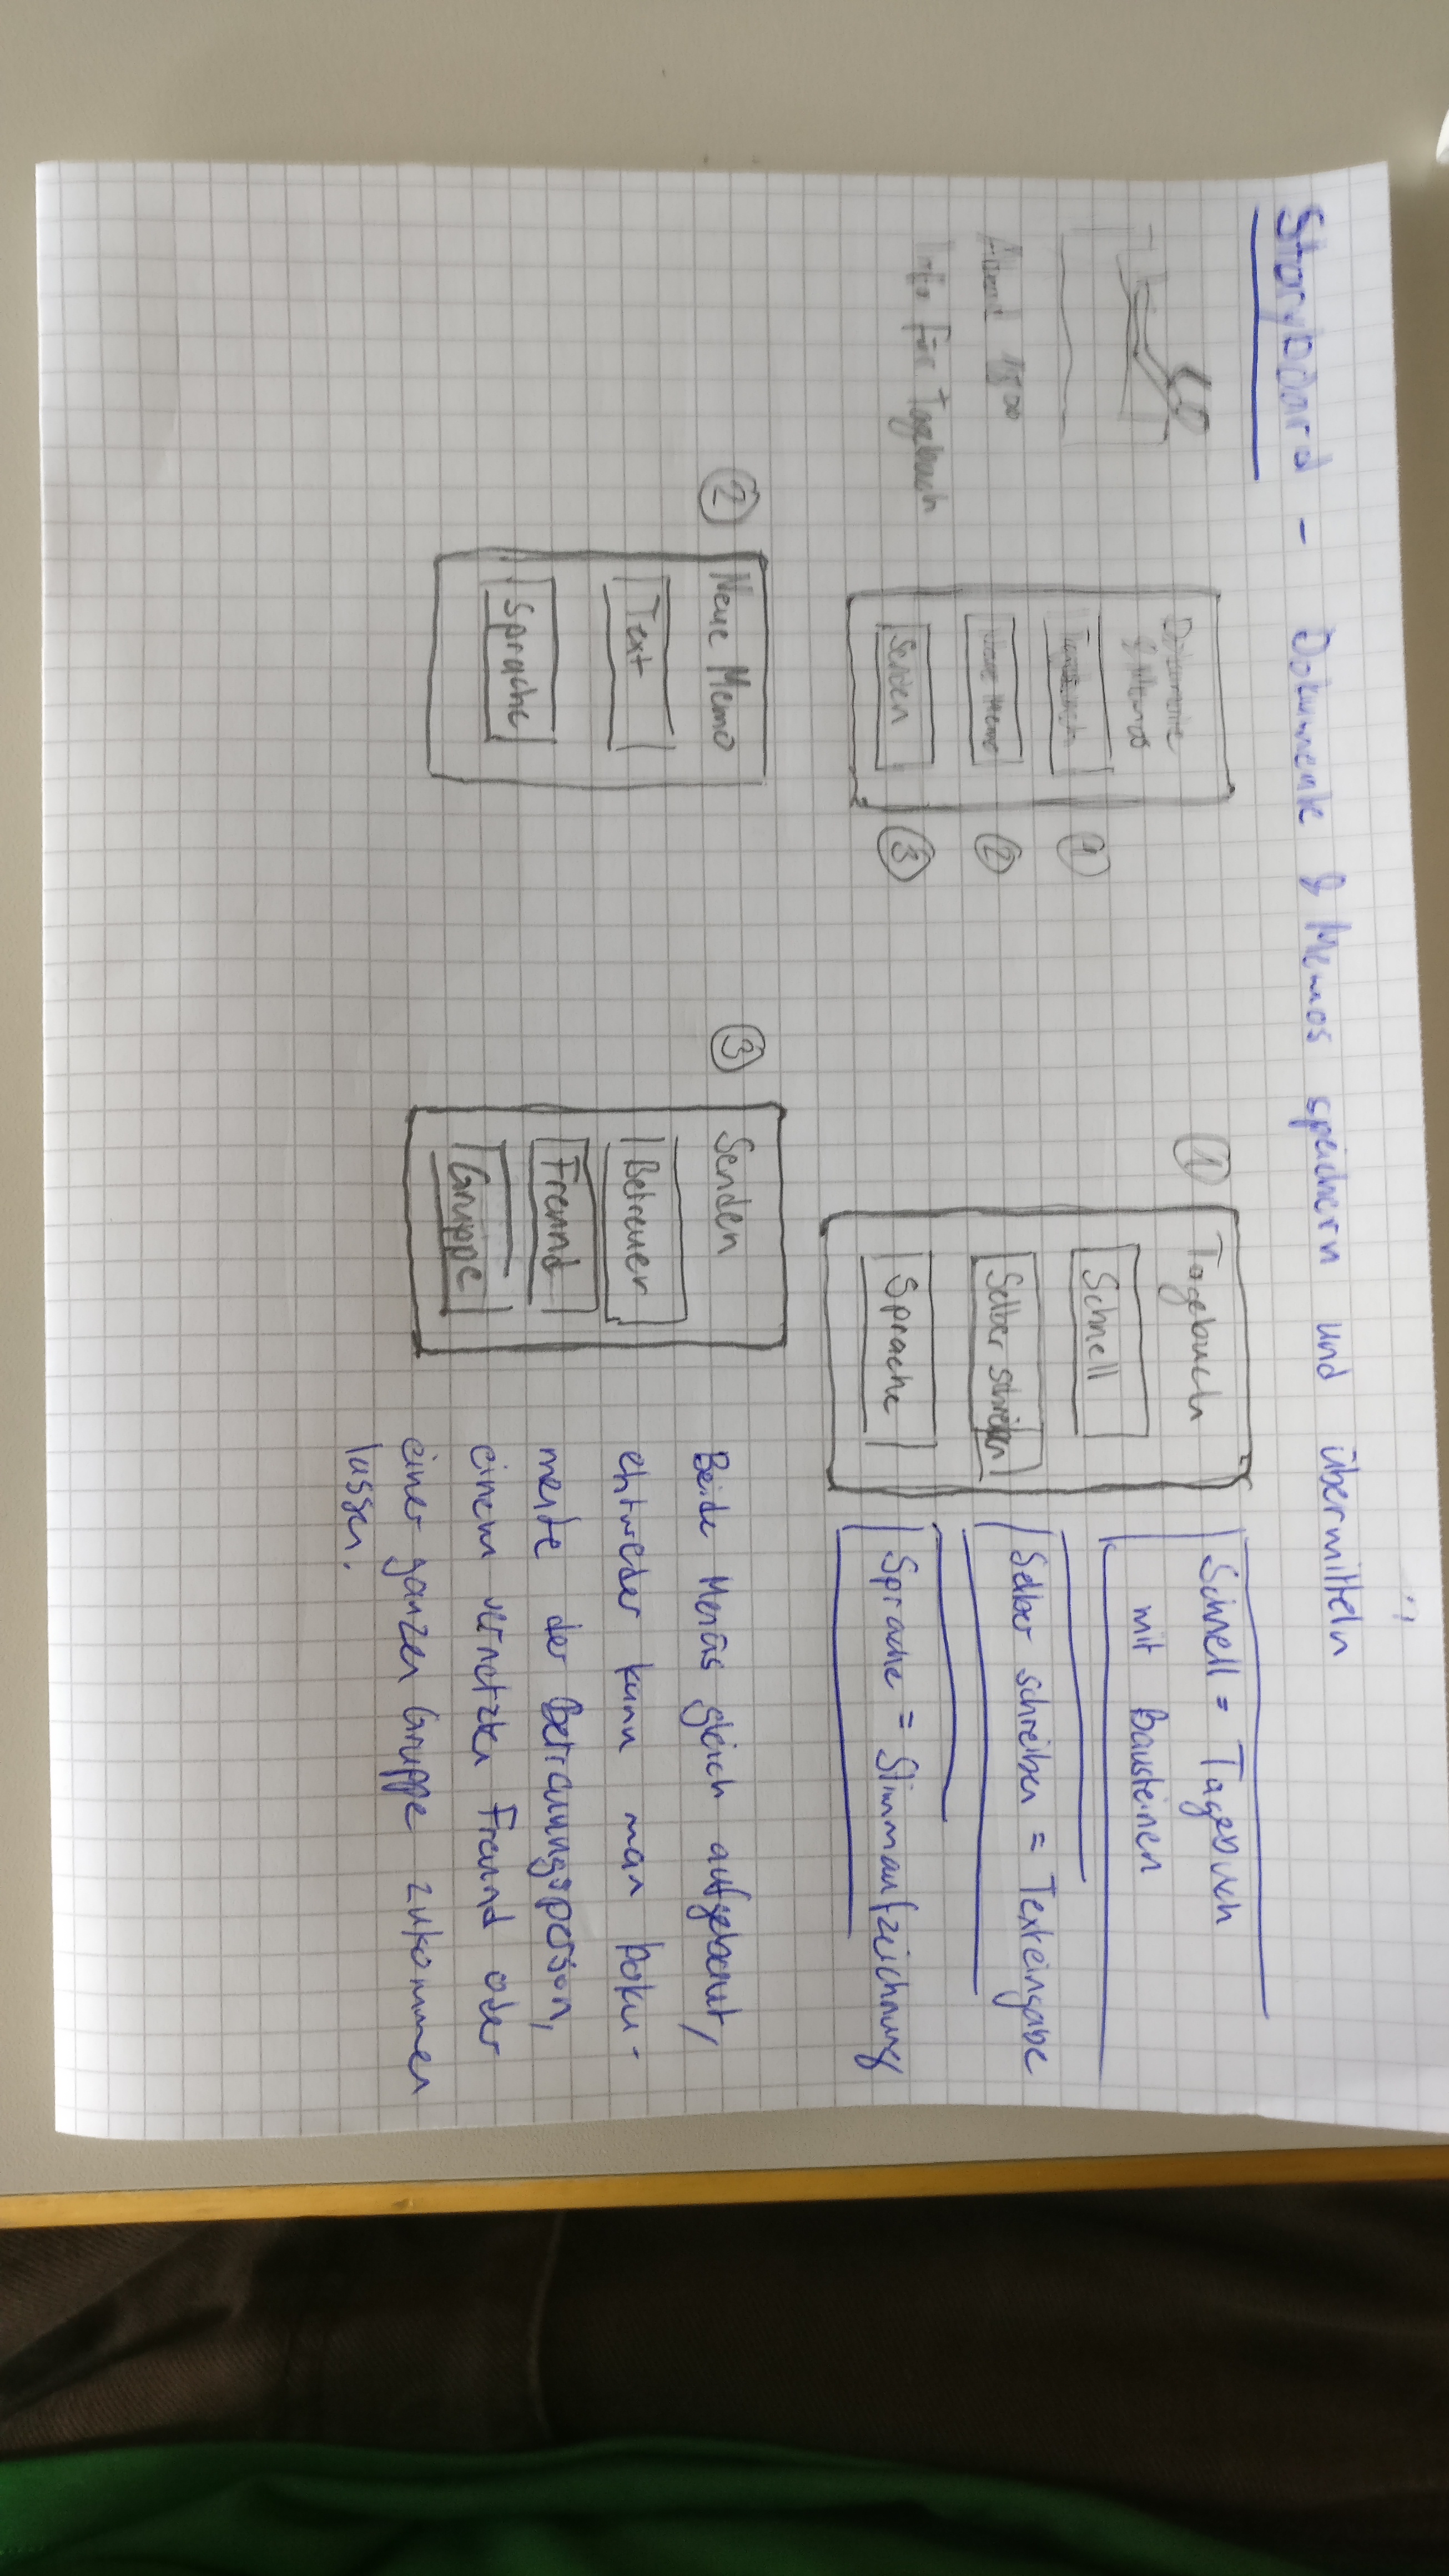 Storyboard - Dokumente & Memos speichern und übermitteln
Abend 1800
Info für Tagebuch
Dokumente
& Memos
Tagebuch
Neue Memo
Senden
①
②
③
①
Tagebuch
Schnell
Selber schreiben
Sprache
Schnell = Tagebuch
mit Bausteinen
Selber schreiben = Texteingabe
Sprache = Stimmaufzeichnung
②
Neue Memo
Text
Sprache
③
Senden
Betreuer
Freund
Gruppe
Beide Menüs gleich aufgebaut/
entweder kann man Doku-
mente der Betreuungsperson,
einem vernetzten Freund oder
einer ganzen Gruppe zukommen
lassen.